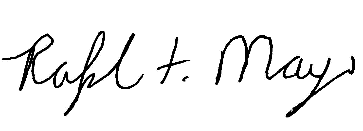 Ralph F. Mayo